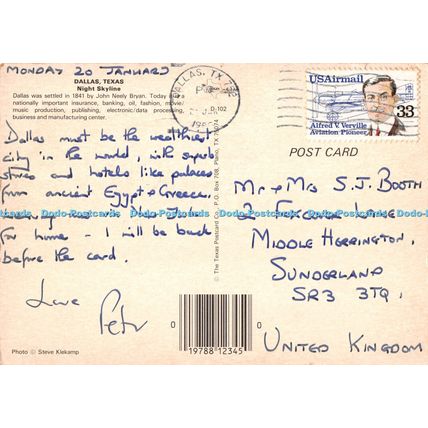 MONDAY 20 JANUARY
DALLAS, TEXAS
Night Skyline
Dallas was settled in 1841 by John Neely Bryan. Today
nationally important insurance, banking, oil, fashion, movie/
music production, publishing, electronic/data processing,
business and manufacturing center.
Dallas must be the wealthiest
city in the world, with superb
stores and hotels like palaces
from ancient Egypt & Greece.
for home - I will be back
before the card.
Love
Peter
Photo © Steve Klekamp
DALLAS, TX 752
D-102
© The Texas Postcard Co. P.O. Box 708, Plano, TX 75074
0
19788 12345
0
USAirmail
33
Alfred V. Verville
Aviation Pioneer
POST CARD
Mr & Mrs S.J. BOOTH
2
MIDDLE HERRINGTON,
SUNDERLAND
SR3 3TQ,
UNITED KINGDOM
Dodo-Postcards Dodo-Postcards Dodo-Postcards Dodo-Postcards